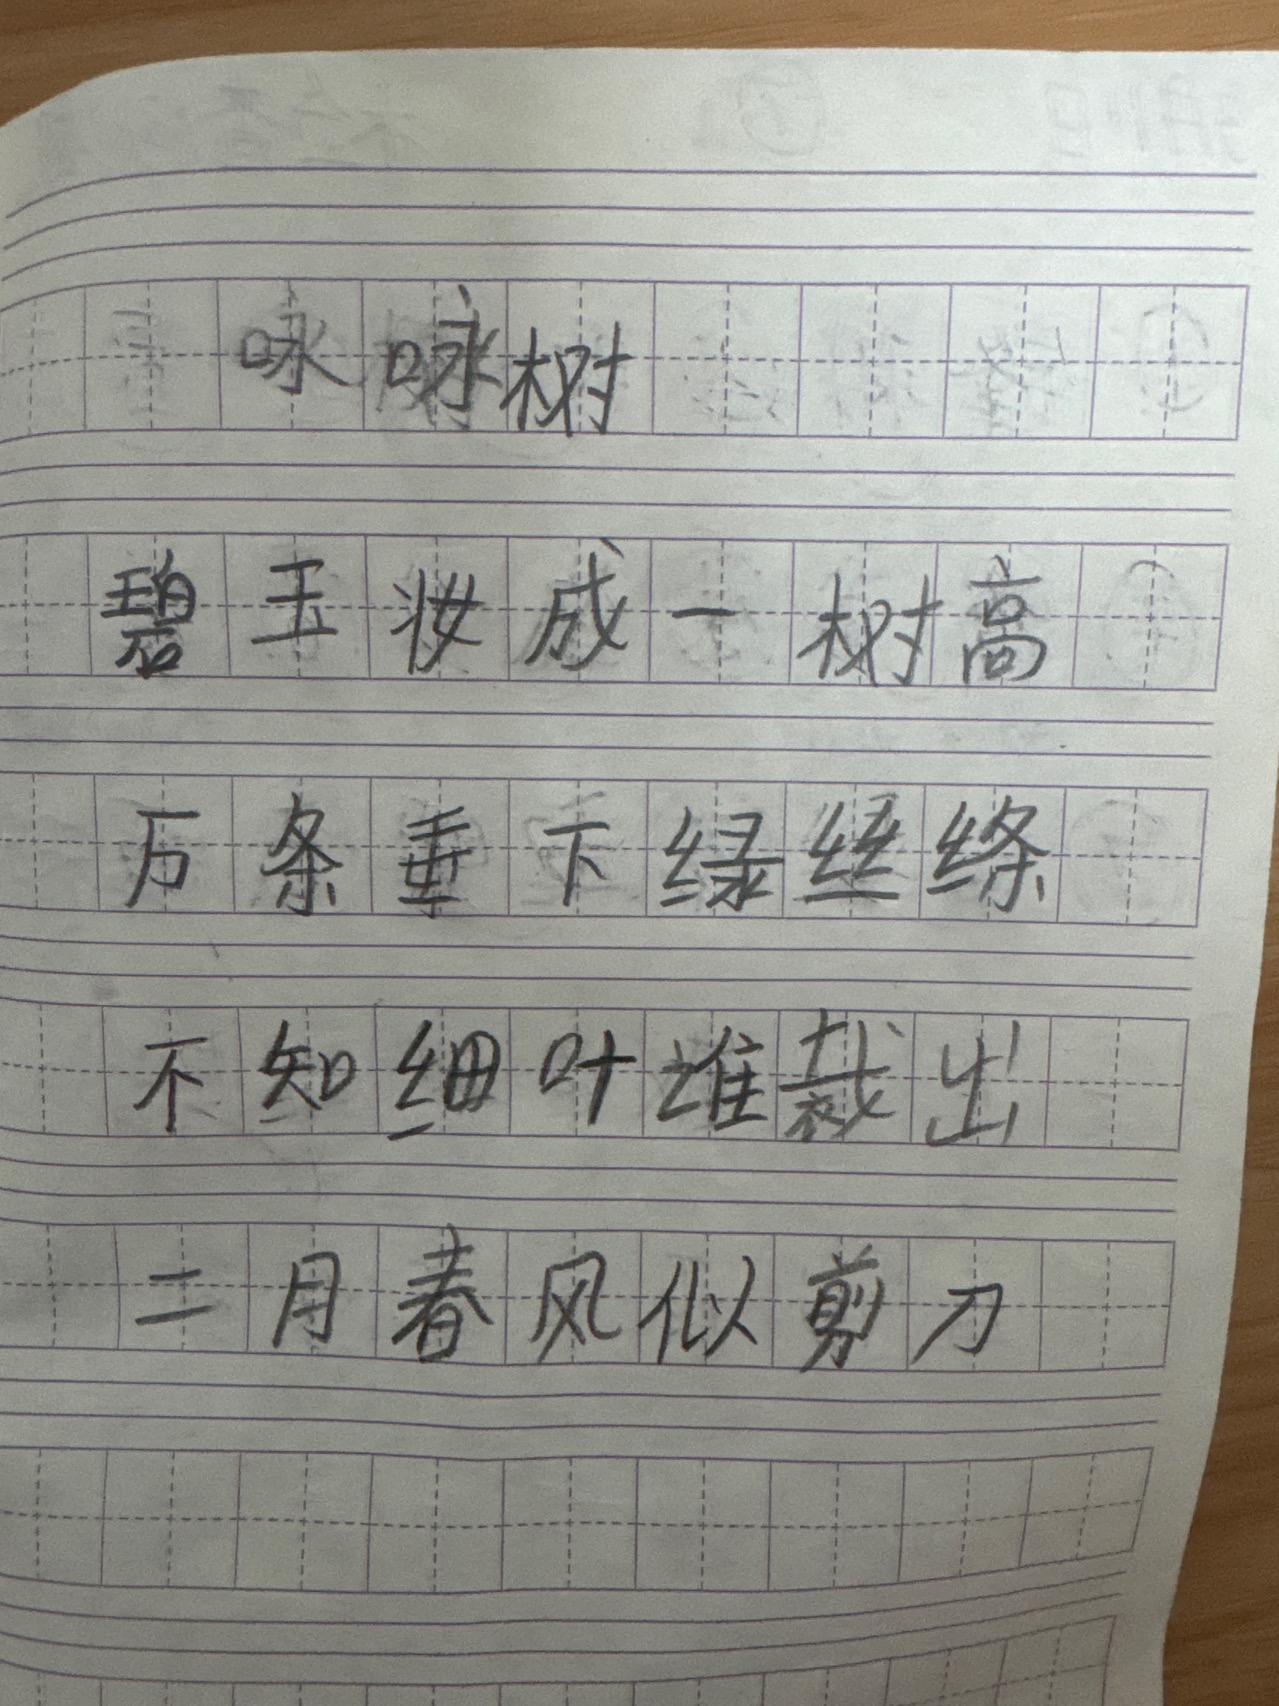 咏咏树
碧玉妆成一树高
万条垂下绿丝绦
不知细叶谁裁出
二月春风似剪刀